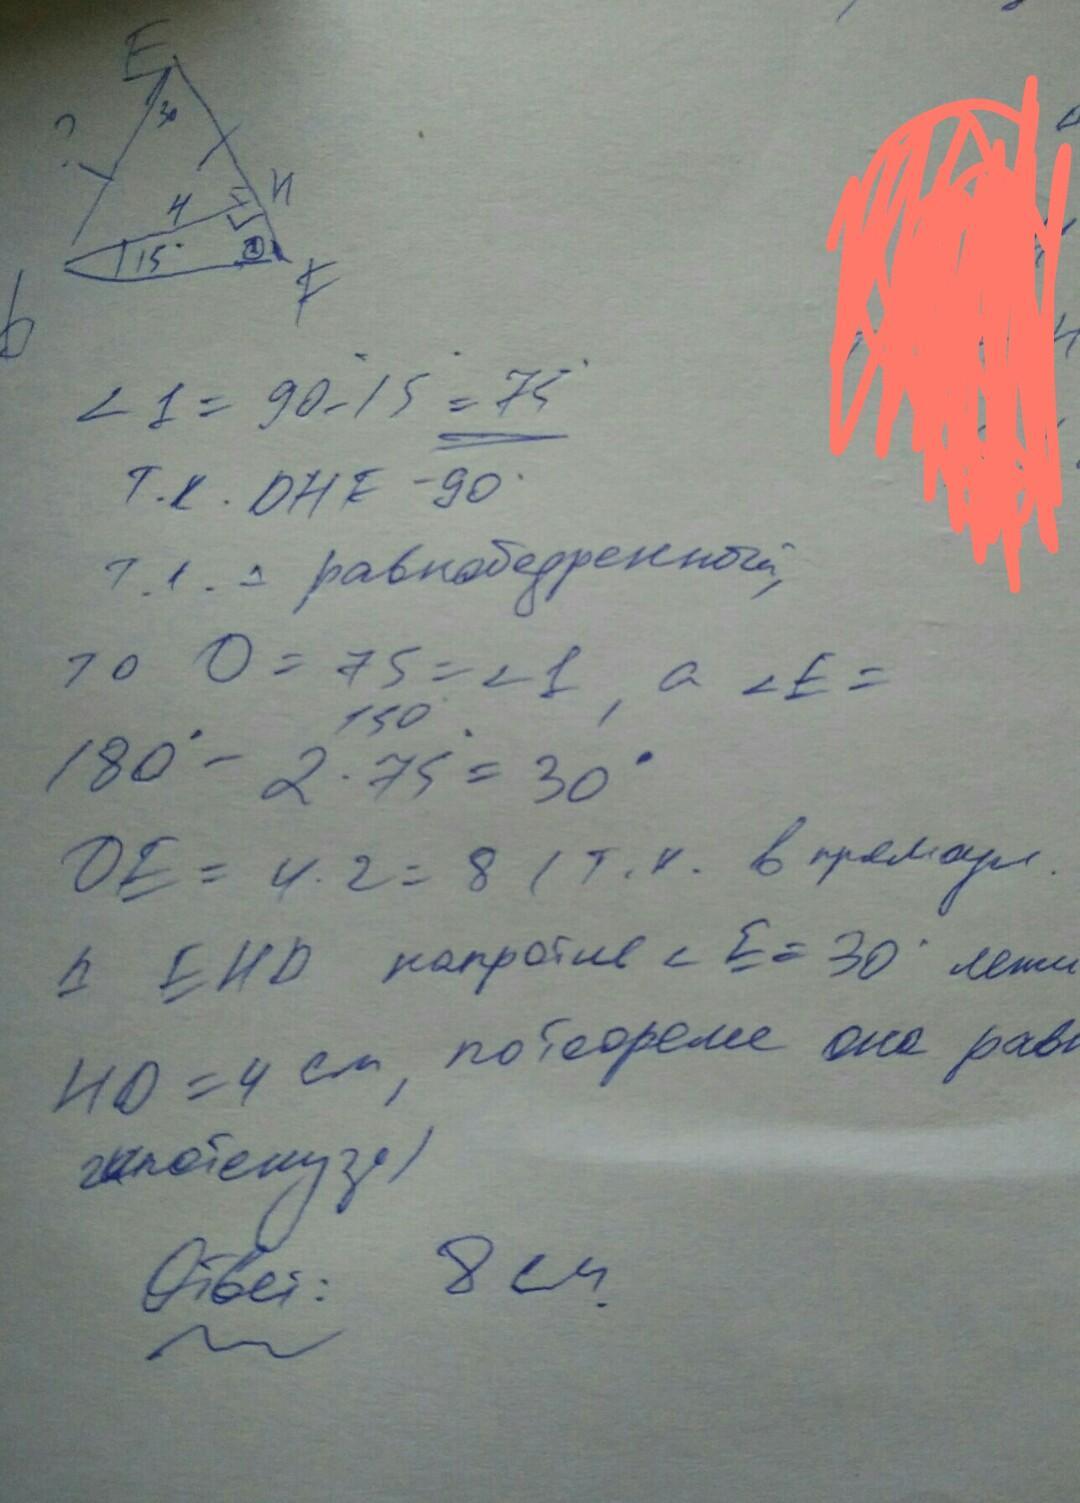 E
30
?
4
H
15°
1
D
F
∠1 = 90° - 15° = 75°
т.к. DHF - 90°
т.к. Δ равнобедренный,
то D = 75 = ∠1, а ∠E =
150
180° - 2 · 75° = 30°
DE = 4 · 2 = 8 (т.к. в прямоуг.
Δ EHD напротив ∠E = 30° лежи
HD = 4 см, по теореме она равн
гипотенузе)
Ответ: 8 см.